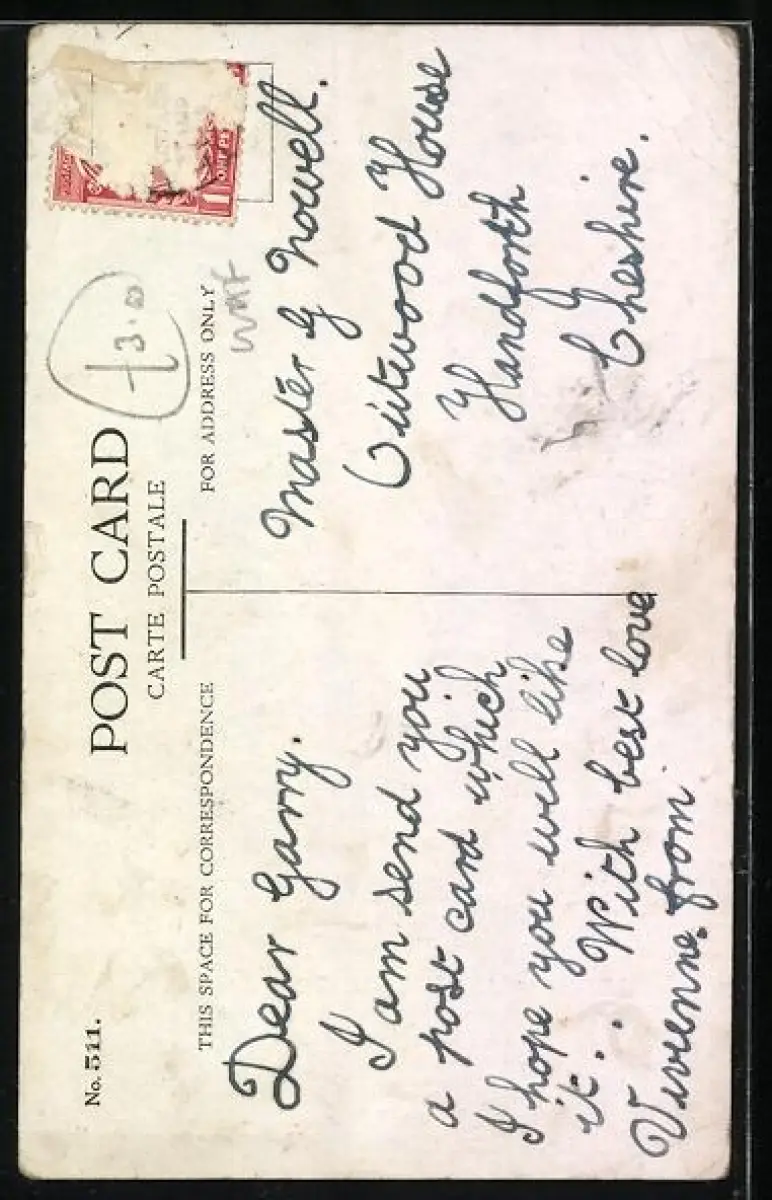 No. 511.
POST CARD
CARTE POSTALE
THIS SPACE FOR CORRESPONDENCE
Dear Garry.
I am send you
a post card which
I hope you well like
it.. With best love
Vivienne. from
FOR ADDRESS ONLY
£3.0
Master G Nowell.
Outwood House
Handforth
Cheshire.